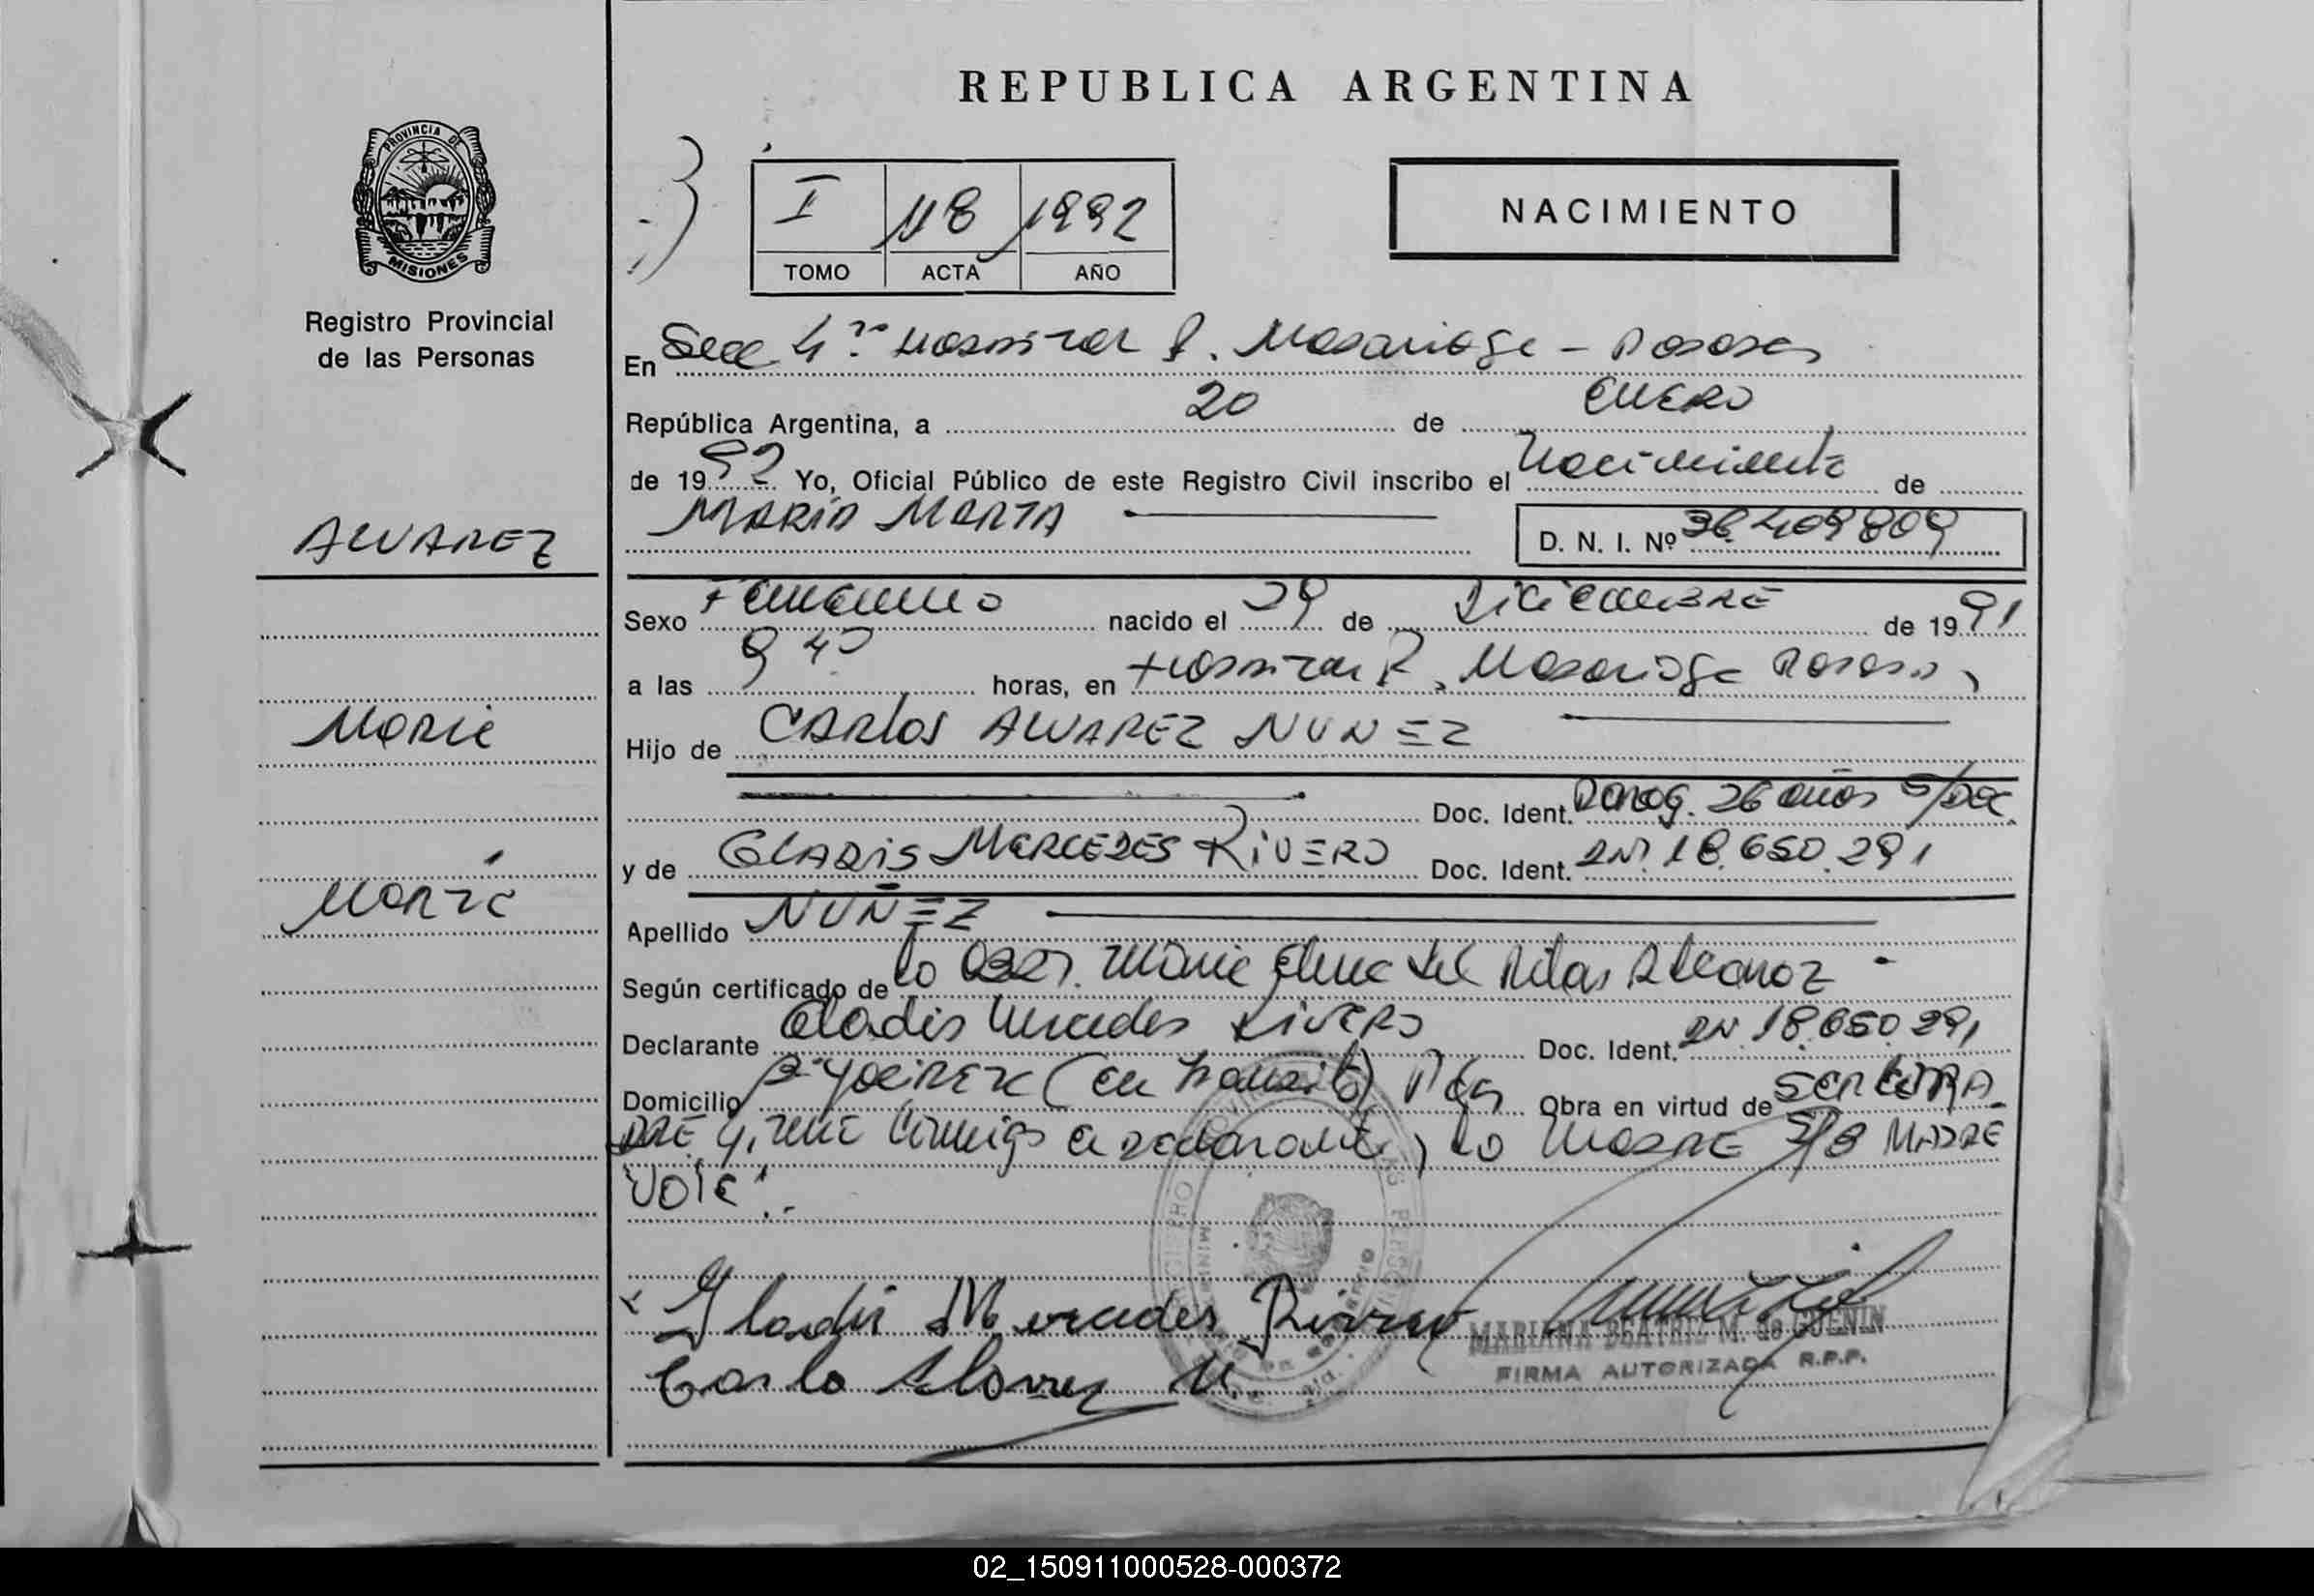 REPUBLICA ARGENTINA
PROVINCIA DE
MISIONES
Registro Provincial
de las Personas
I 118 1992
TOMO ACTA AÑO
NACIMIENTO
En Secc 4ta Hospital R. Madariaga - Posadas
República Argentina, a 20 de ENERO
de 1992 Yo, Oficial Público de este Registro Civil inscribo el Nacimiento de
ALVAREZ
MARIA MARTA
D. N. I. Nº 36.409809
Sexo Femenino nacido el 29 de DiciemBRE de 1991
a las 9 40 horas, en Hospital R. Madariaga Posadas
Maria
Hijo de CARlos ALVAREZ NUÑEZ
Doc. Ident. Parag. 26 años S/Doc.
y de GLADIS MERCEDES RiVERO Doc. Ident. DNI 18.650.291
Marta
Apellido NUÑEZ
Según certificado de la Obst. Maria Elena del
Declarante Gladis Mercedes RiVERO Doc. Ident. DNI 18.650.291
Domicilio (en transito) Obra en virtud de
la MADRE S/B MADRE
"VOLE".-
Gladis Mercedes Rivero
Carlo Alvarez N.
MARIANA BEATRIZ M. de GUENIN
FIRMA AUTORIZADA R.P.P.
02_150911000528-000372